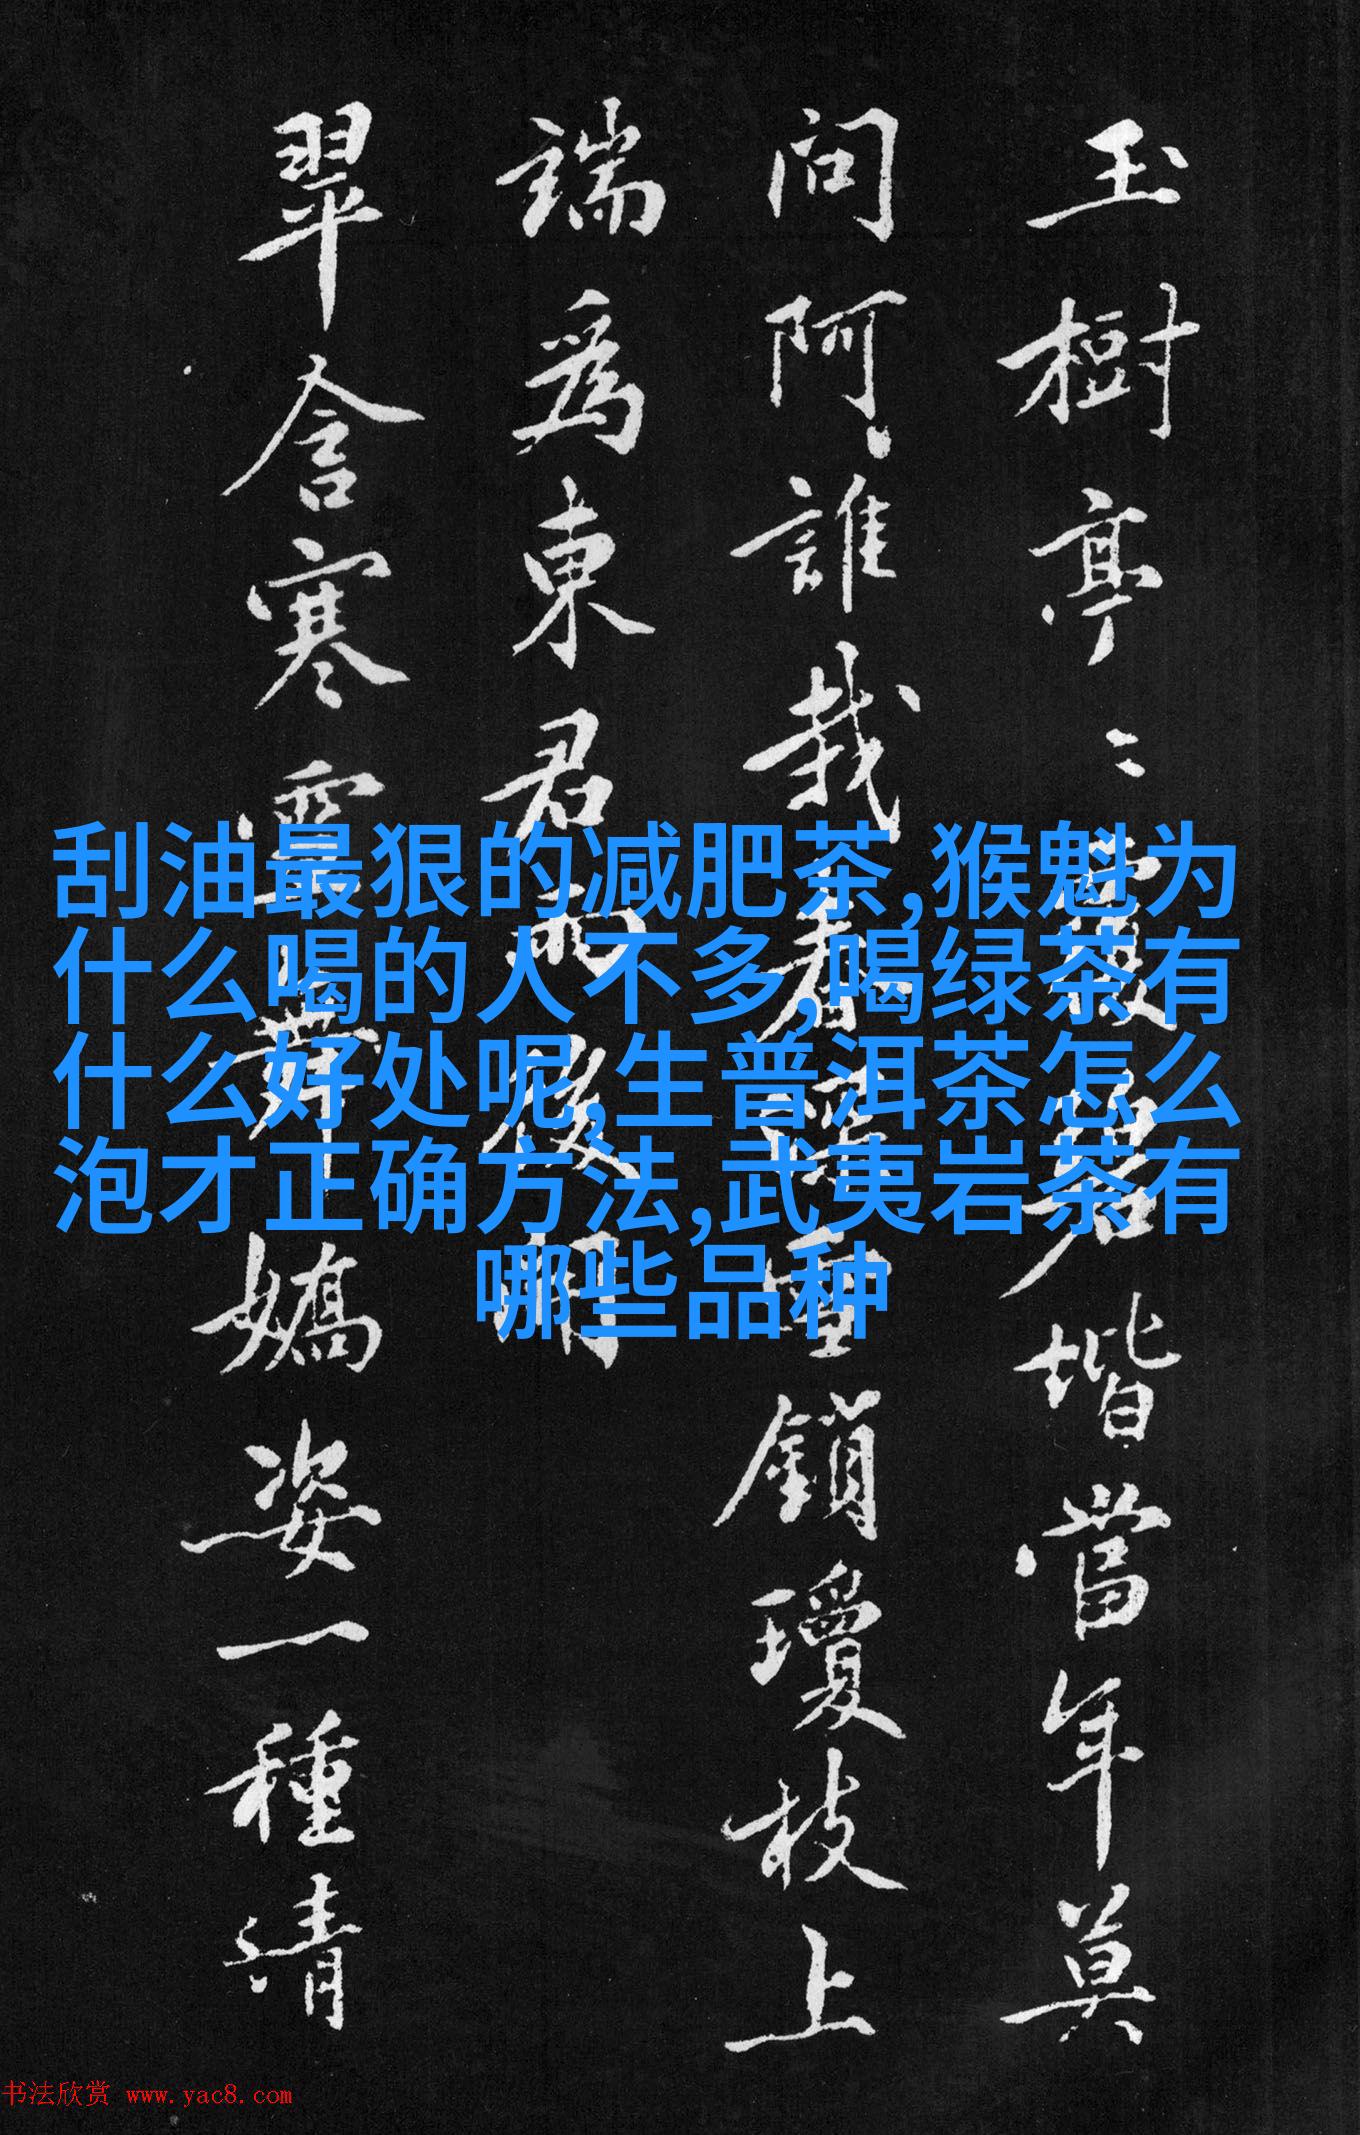 玉樹亭〻
階當年莫
問阿誰栽春
鎖瓊枝上
端為東君
翠含寒
嬌姿一種清
刮油最狠的减肥茶,猴魁为
什么喝的人不多,喝绿茶有
什么好处呢,生普洱茶怎么
泡才正确方法,武夷岩茶有
哪些品种
书法欣赏 www.yac8.com